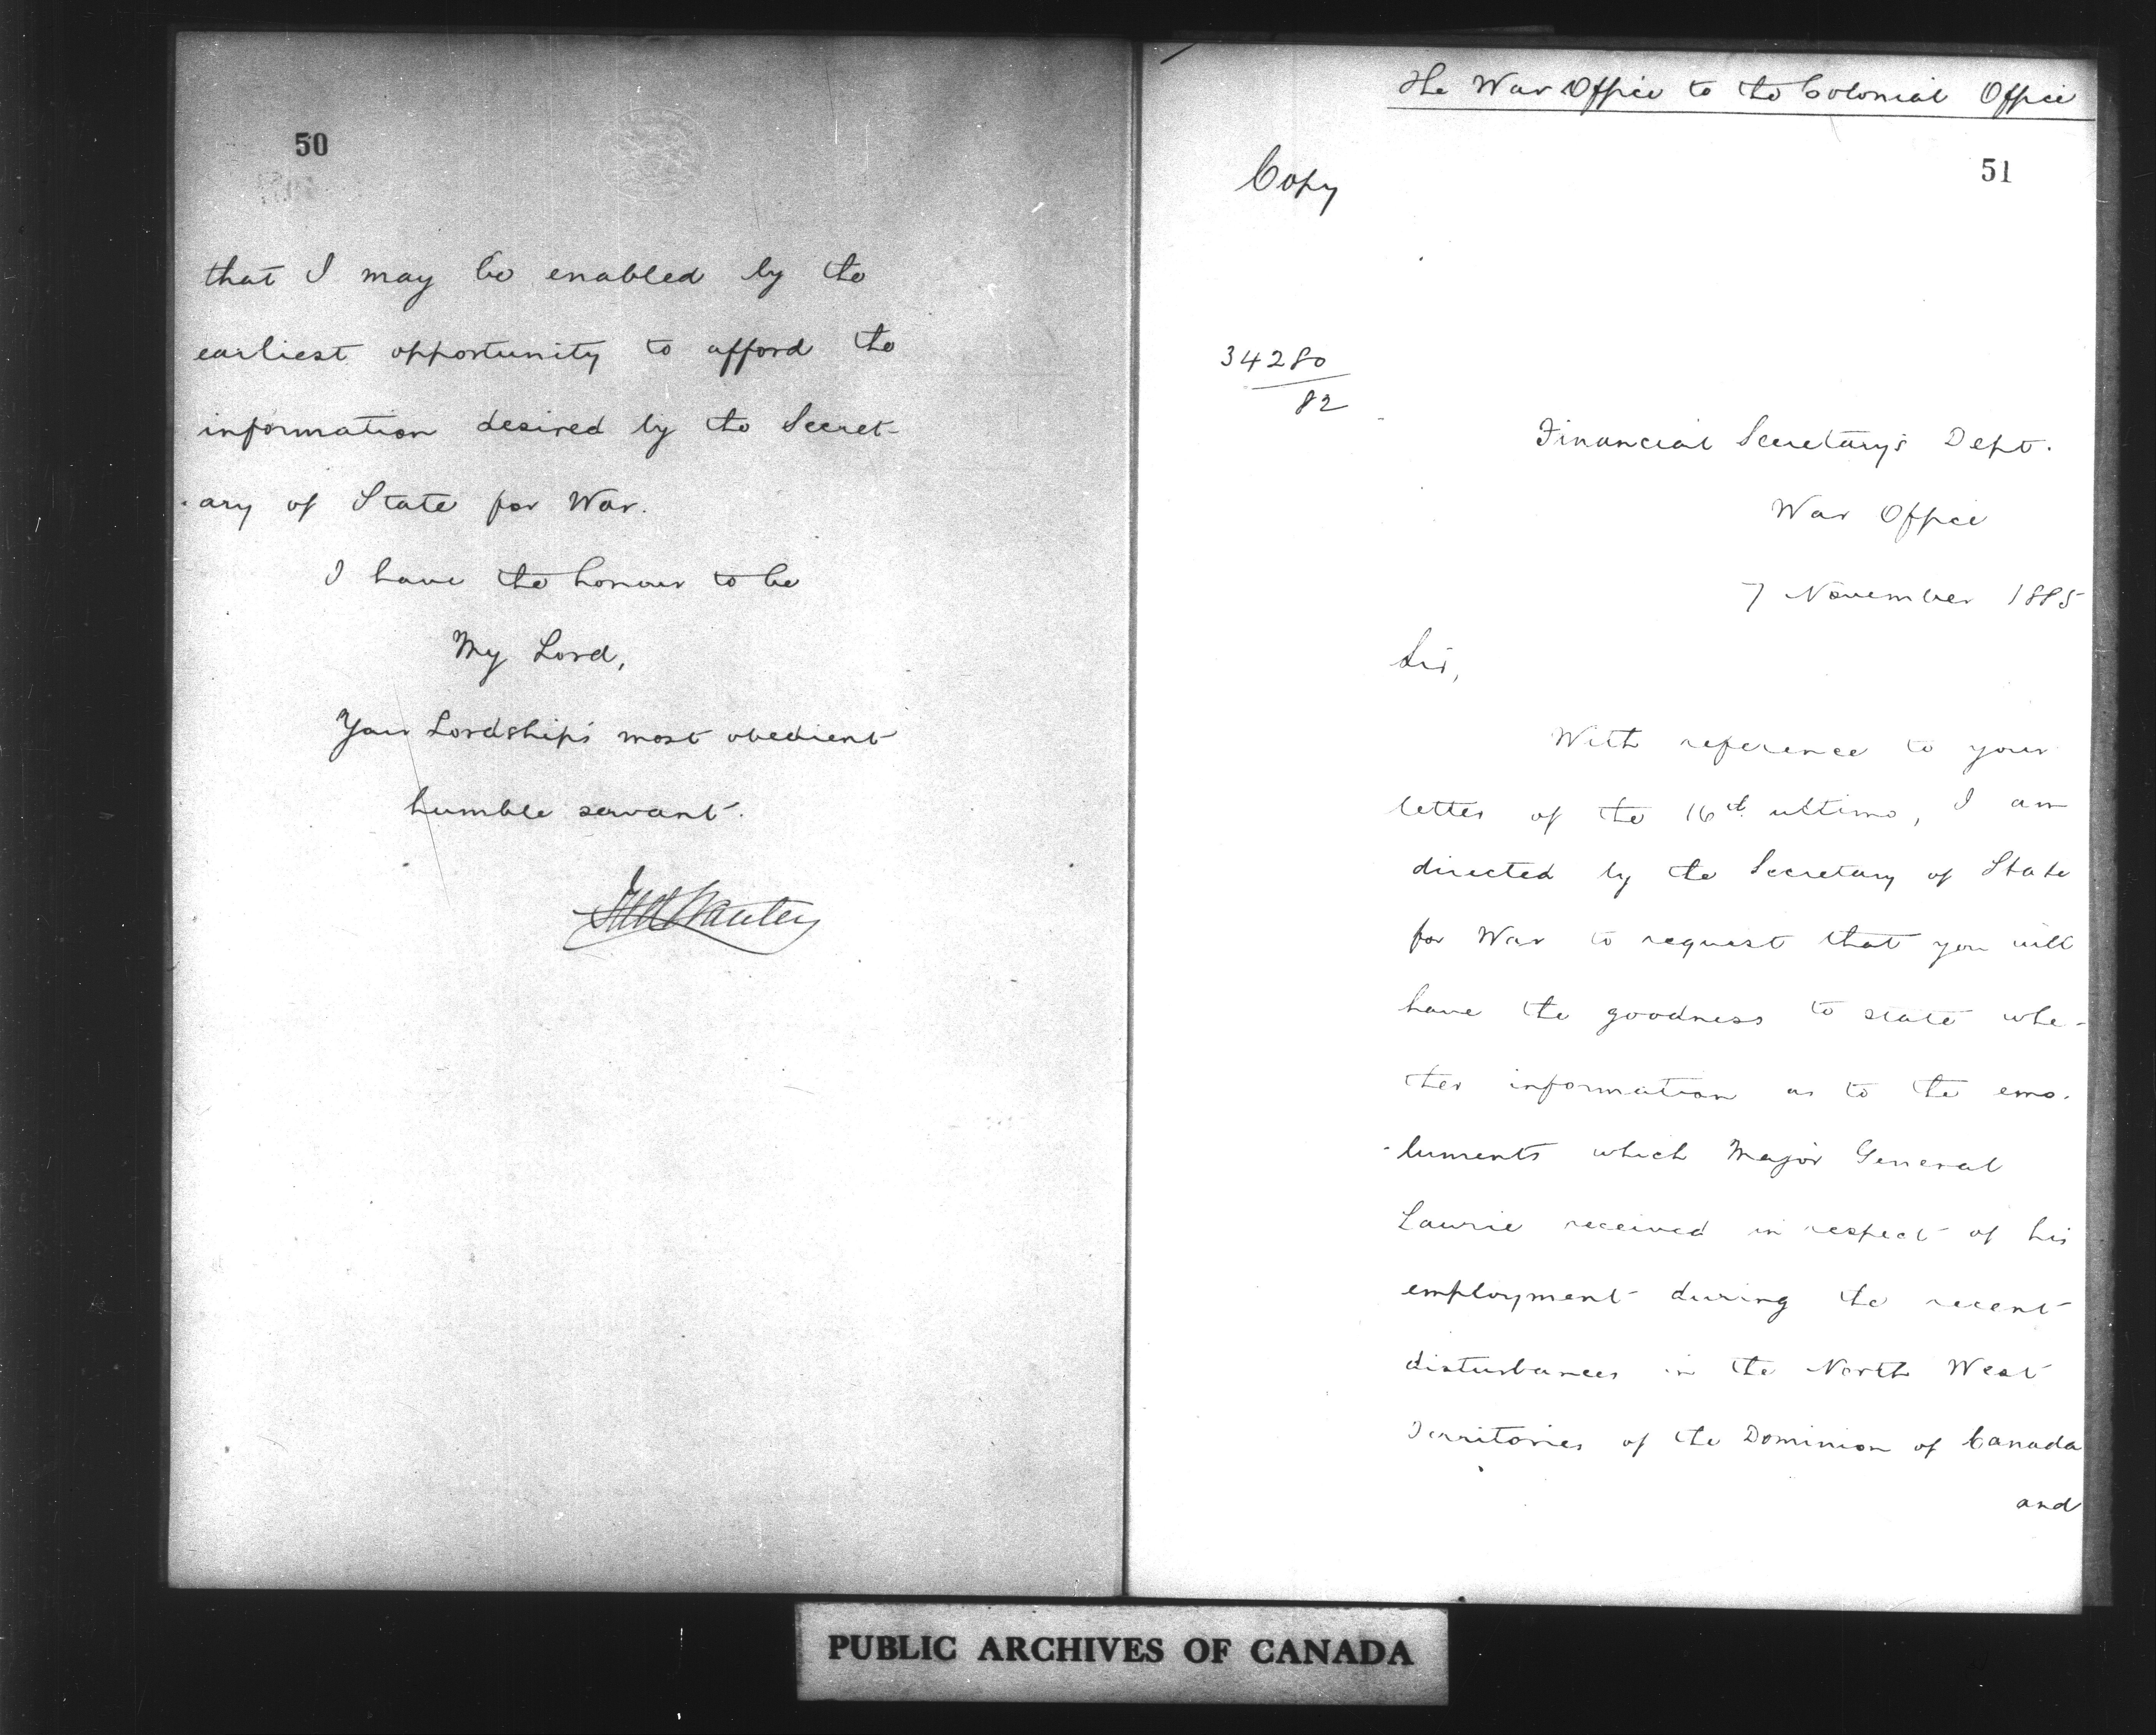 50
that I may be enabled by the
earliest opportunity to afford the
information desired by the Secret-
-ary of State for War.
I have the honour to be
My Lord,
Your Lordship's most obedient
humble servant.
The War Office to the Colonial Office
51
Copy
34280
82
Financial Secretary's Dept.
War Office
7 November 1885
Sir,
With reference to your
letter of the 16th ultimo, I am
directed by the Secretary of State
for War to request that you will
have the goodness to state whe-
ther information as to the emo-
-luments which Major General
Laurie received in respect of his
employment during the recent
disturbances in the North West
Territories of the Dominion of Canada
and
PUBLIC ARCHIVES OF CANADA